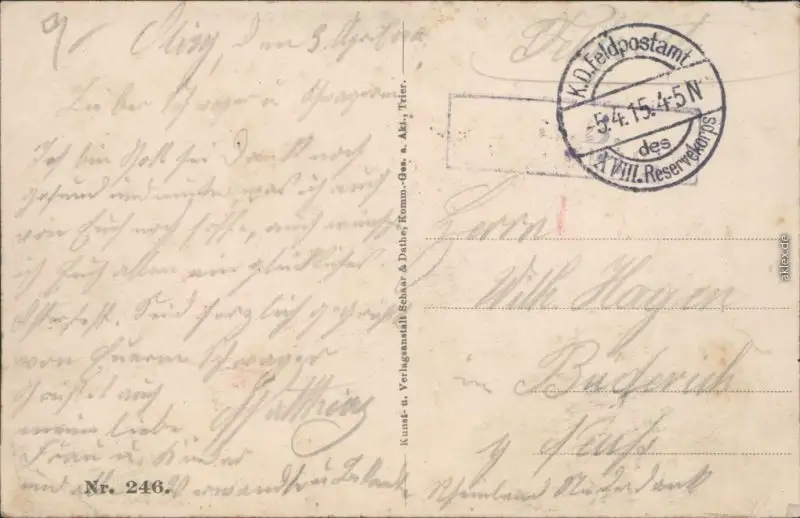 Olizy, den 3. April 1915
Lieber Schwager u. Schwägerin
Ich bin Gott sei Dank noch
gesund und munter, was ich auch
von Euch noch hoffe, auch wünsche
ich Euch allen ein glückliches
Osterfest. Seid herzlich gegrüßt
von Euerm Schwager
Matthias
Grüßt auch
meine liebe
Frau u. Kinder
und alle Verwandte u. Bekannte
Nr. 246.
Kunst- u. Verlagsanstalt Schaar & Dathe, Komm.-Ges. a. Akt., Trier.
Feldpost
K.D. Feldpostamt
-5.4.15.4-5N
des
XVIII. Reservekorps
Herrn
Wilh. Hagen
in Büderich
Neuss
Rheinland
akpool.de